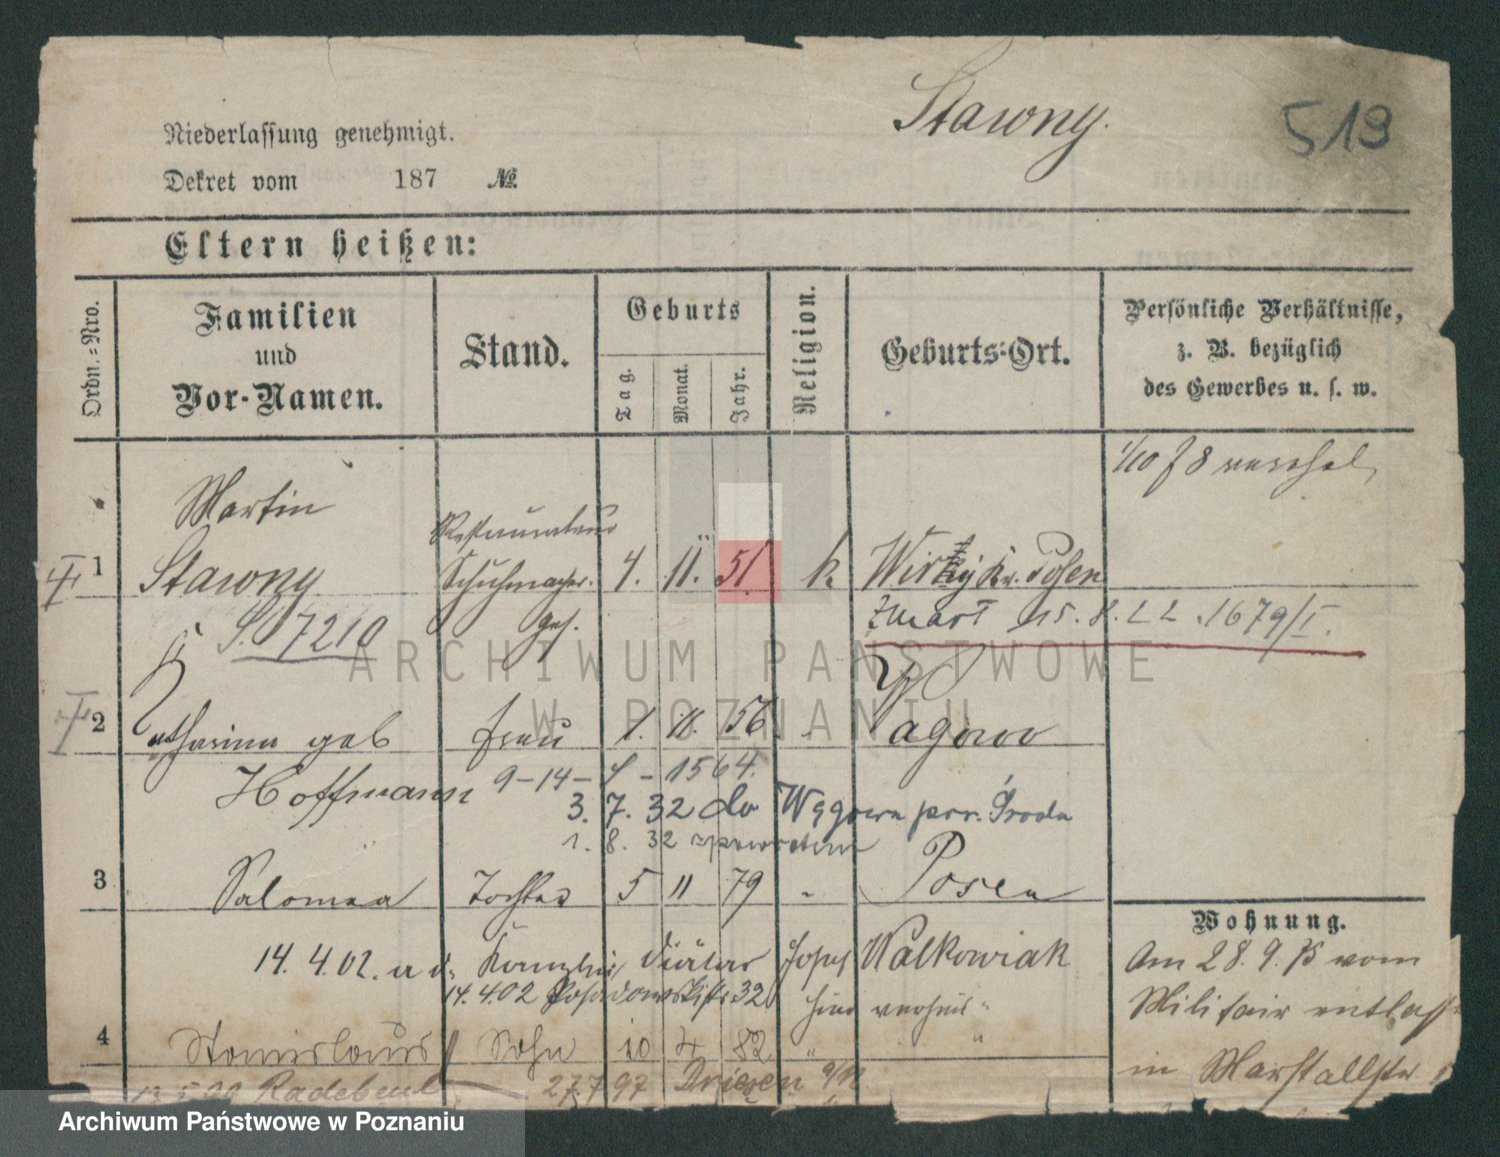 Stawny.
519
Niederlassung genehmigt.
Dekret vom 187 №
Eltern heißen:
Ordn.=Nro.
Familien und Vor-Namen.
Stand.
Geburts
Tag. Monat. Jahr.
Religion.
Geburts-Ort.
Persönliche Verhältnisse, z. B. bezüglich des Gewerbes u. s. w.
1/10 78
Martin
Restaurateur
1 Stawny Schuhmacher. 4. 11. 51. k. Kr. Posen
ges.
S. 7210
zmarł 15. 8. 22. 1679/I.
2 Katharina geb Frau 1. 11. 56 Zagorow
Hoffmann 9-14- - 1564.
3. 7. 32 do Węgowa pow. Środa
1. 8. 32 z powrotem
3 Salomea Tochter 5 11 79 " Posen
Wohnung.
14. 4. 02. a d. Kanzlei Diätar Josef Walkowiak
Am 28. 9. 75 vom
14.4.02 Posadowskistr 32 hier verheir.
Militair entlass
4 Stanislaus Sohn 10 4 82 " "
in Marstallstr
Radebeul 27.7.97 Driesen
ARCHIWUM PAŃSTWOWE
W POZNANIU
Archiwum Państwowe w Poznaniu